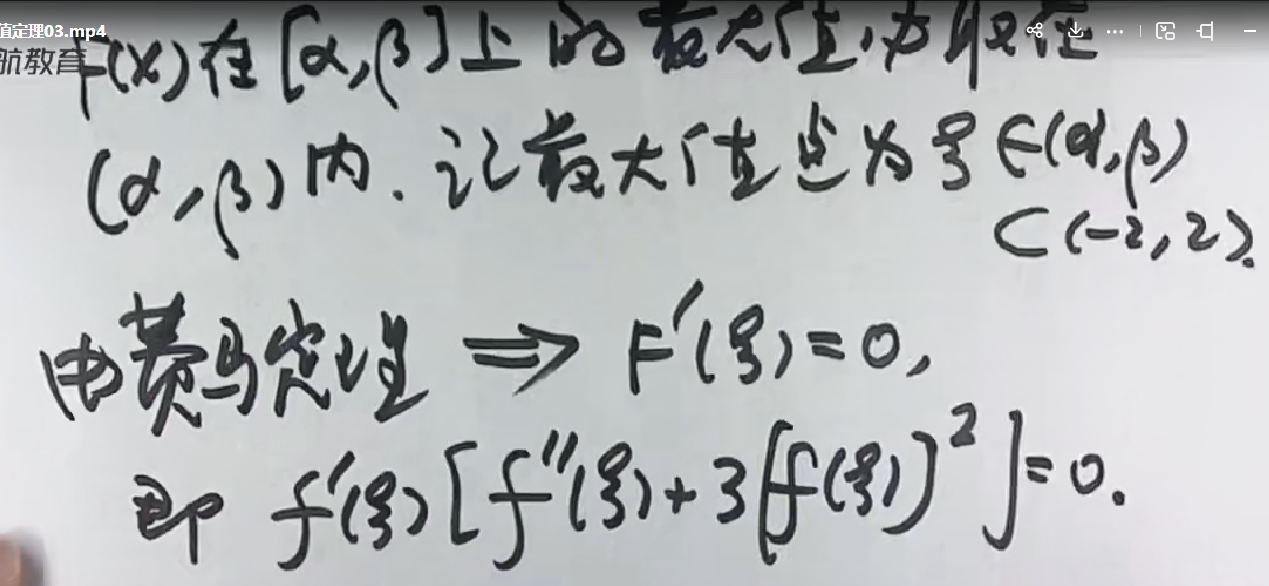 值定理03.mp4
航教育
F(x)在[α,β]上的最大值必取在
(α,β)内.记最大值点为ξ∈(α,β)
⊂(-2,2).
由费马定理 ⟹ F'(ξ)=0,
即 f'(ξ)[f''(ξ)+3[f(ξ)]²]=0.